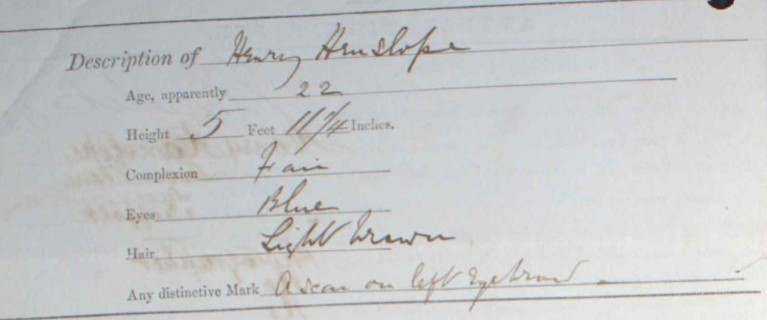 Description of Henry Henslope
Age, apparently 22
Height 5 Feet 11 1/4 Inches.
Complexion Fair
Eyes Blue
Hair Light brown
Any distinctive Mark A scar on left Eyebrow